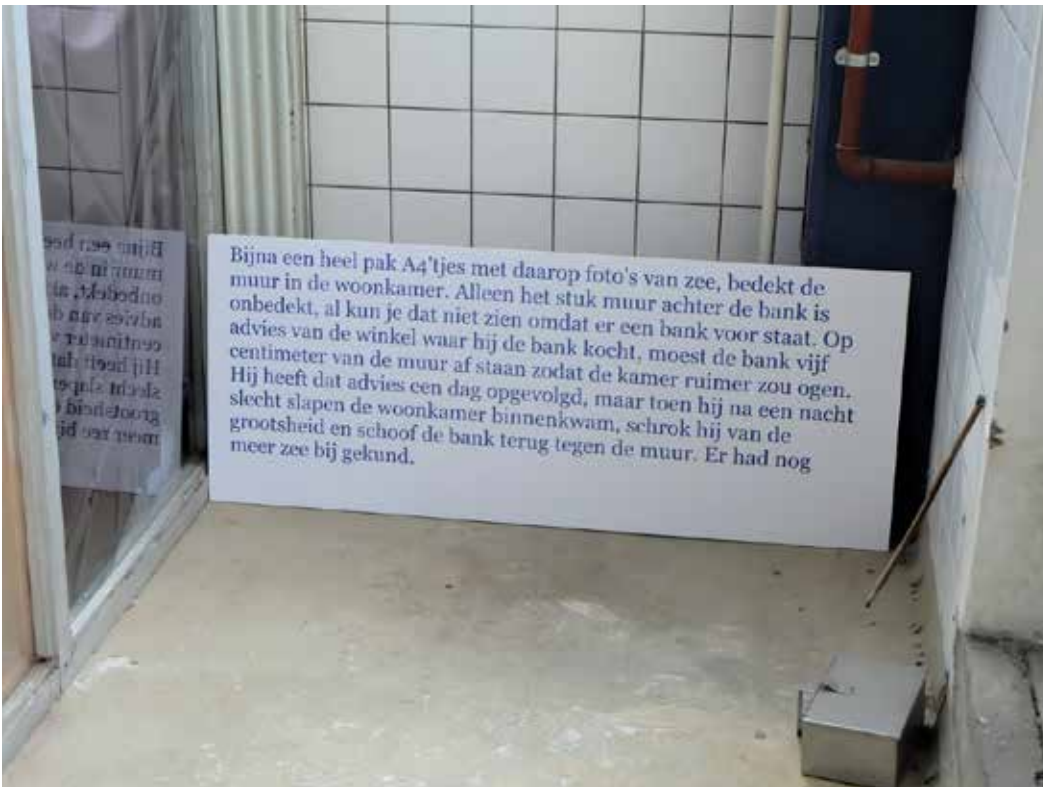 Bijna een heel pak A4'tjes met daarop foto's van zee, bedekt de
muur in de woonkamer. Alleen het stuk muur achter de bank is
onbedekt, al kun je dat niet zien omdat er een bank voor staat. Op
advies van de winkel waar hij de bank kocht, moest de bank vijf
centimeter van de muur af staan zodat de kamer ruimer zou ogen.
Hij heeft dat advies een dag opgevolgd, maar toen hij na een nacht
slecht slapen de woonkamer binnenkwam, schrok hij van de
grootsheid en schoof de bank terug tegen de muur. Er had nog
meer zee bij gekund.